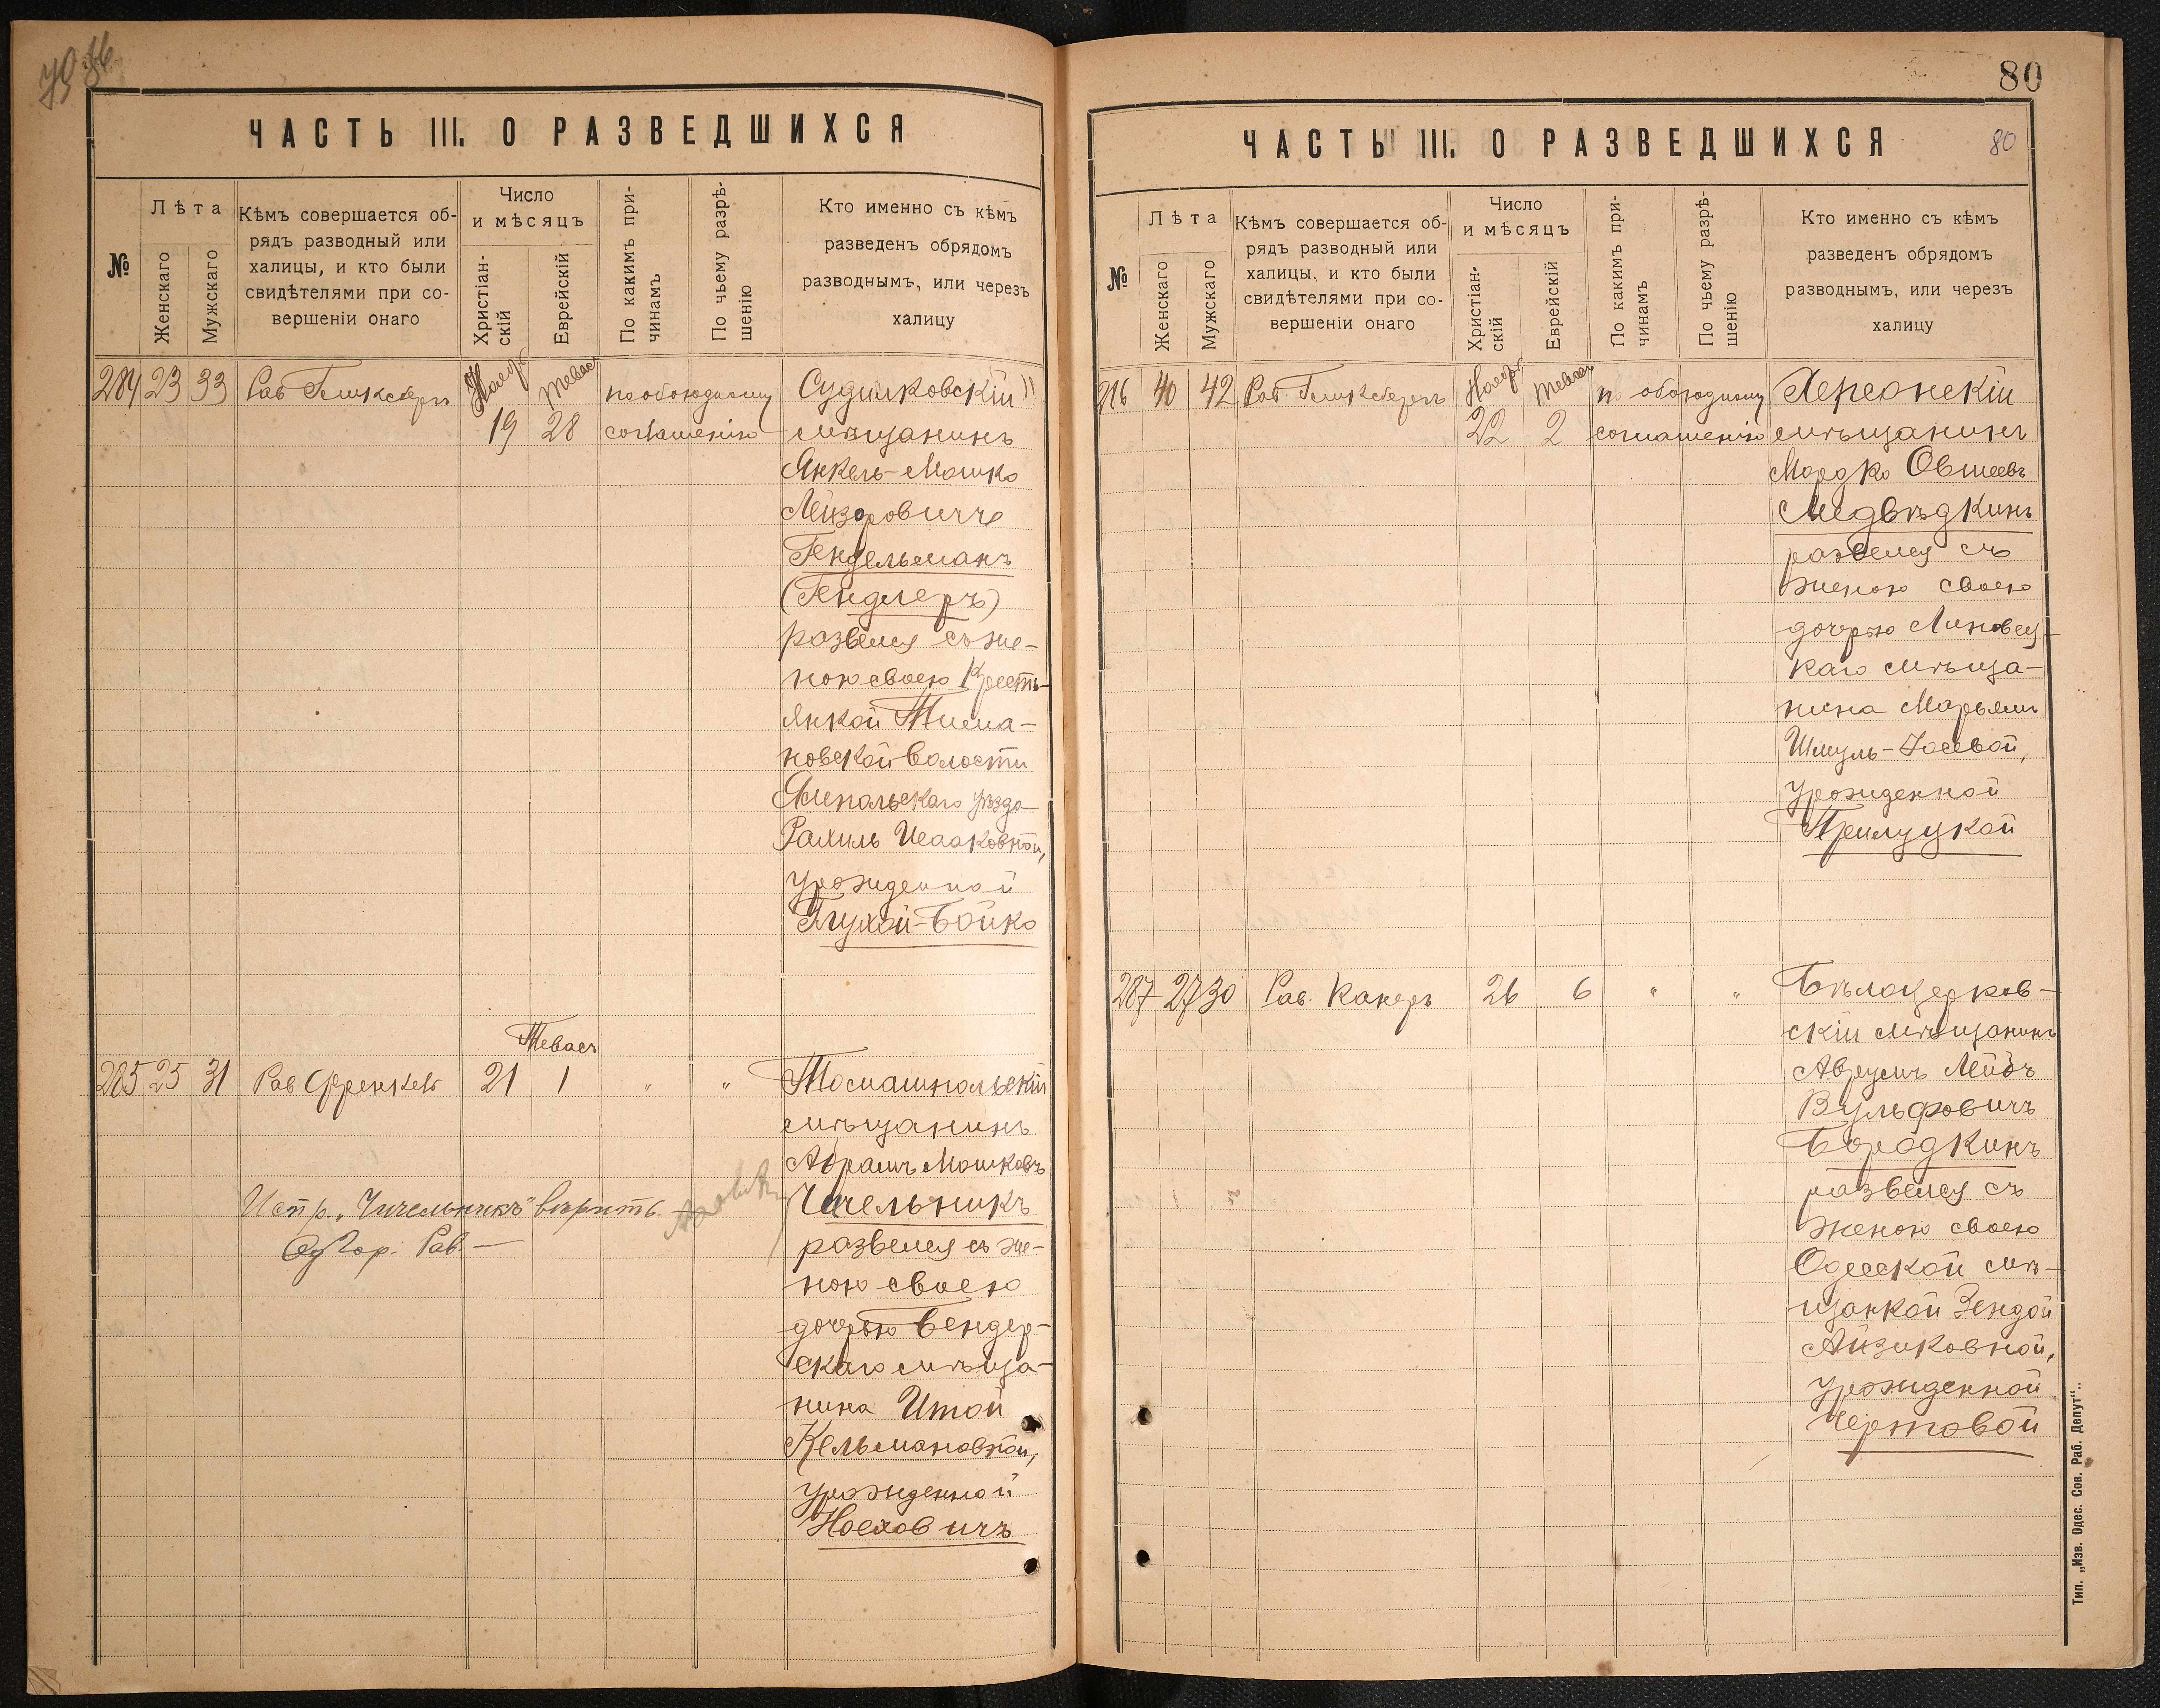 ЧАСТЬ III. О РАЗВЕДШИХСЯ
№
Лѣта
Женскаго
Мужскаго
Кѣмъ совершается об-
рядъ разводный или
халицы, и кто были
свидѣтелями при со-
вершеніи онаго
Число
и мѣсяцъ
Христіан-
скій
Еврейскій
По какимъ при-
чинамъ
По чьему разрѣ-
шенію
Кто именно съ кѣмъ
разведенъ обрядомъ
разводнымъ, или черезъ
халицу
284 23 33 Рав Гликсбергъ Ноябр. 19 28 по обоюдному
соглашенію
Судилковскій
мѣщанинъ
Янкель-Мошко
Лейзоровичъ
Гендельманъ
(Гендлеръ)
развелся съ же-
ною своею Кресть-
янкой
новской волости
Ямпольскаго уѣзда
Рахиль Исааковной,
урожденной
Глухой-Бойко
Теваст
285 25 31 Рав Френкель 21 1 " "
Томашпольскій
мѣщанинъ
Абрамъ Мошковъ
Чичельникъ
развелся съ же-
ною своею
дочерью Бендер-
скаго мѣща-
нина Итой
Кельмановной,
урожденной
Ноеховичъ
Испр. „Чичельникъ" вѣрить.
Од Гор. Рав. —
80
ЧАСТЬ III. О РАЗВЕДШИХСЯ
80
№
Лѣта
Женскаго
Мужскаго
Кѣмъ совершается об-
рядъ разводный или
халицы, и кто были
свидѣтелями при со-
вершеніи онаго
Число
и мѣсяцъ
Христіан-
скій
Еврейскій
По какимъ при-
чинамъ
По чьему разрѣ-
шенію
Кто именно съ кѣмъ
разведенъ обрядомъ
разводнымъ, или черезъ
халицу
286 40 42 Рав. Гликсбергъ Ноябр. 22 2 по обоюдному
соглашенію
Херсонскій
мѣщанинъ
Мордко Овшеевъ
Медвѣдкинъ
развелся съ
женою своею
дочерью Липовец-
каго мѣща-
нина Марьямъ
Шмуль-Іосевой,
урожденной
Прилуцкой
287 27 30 Рав. Канеръ 26 6 " "
Бѣлоцерков-
скій мѣщанинъ
Аврумъ Лейбъ
Вульфовичъ
Бородкинъ
развелся съ
женою своею
Одесской мѣ-
щанкой Зендой
Айзиковной,
урожденной
Чертовой
Тип. „Изв. Одес. Сов. Раб. Депут".